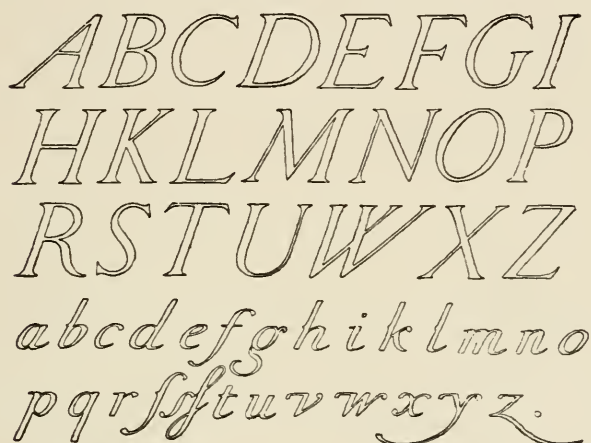 ABCDEFGI
HKLMNOP
RSTUWXZ
abcdefghiklmno
pqrſsßtuvwxyz.